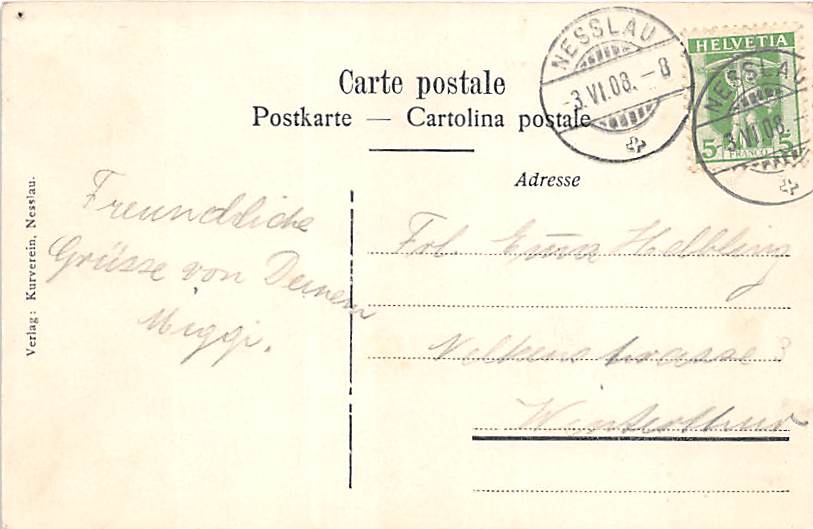 Carte postale
Postkarte — Cartolina postale
NESSLAU
-3.VI.08.-8
HELVETIA
5 FRANCO 5
NESSLAU
-3.VI.08.
Adresse
Freundliche
Grüsse von Deinem
Miggi.
Frl. Emma Helbling
Nelkenstrasse 3
Winterthur
Verlag: Kurverein, Nesslau.